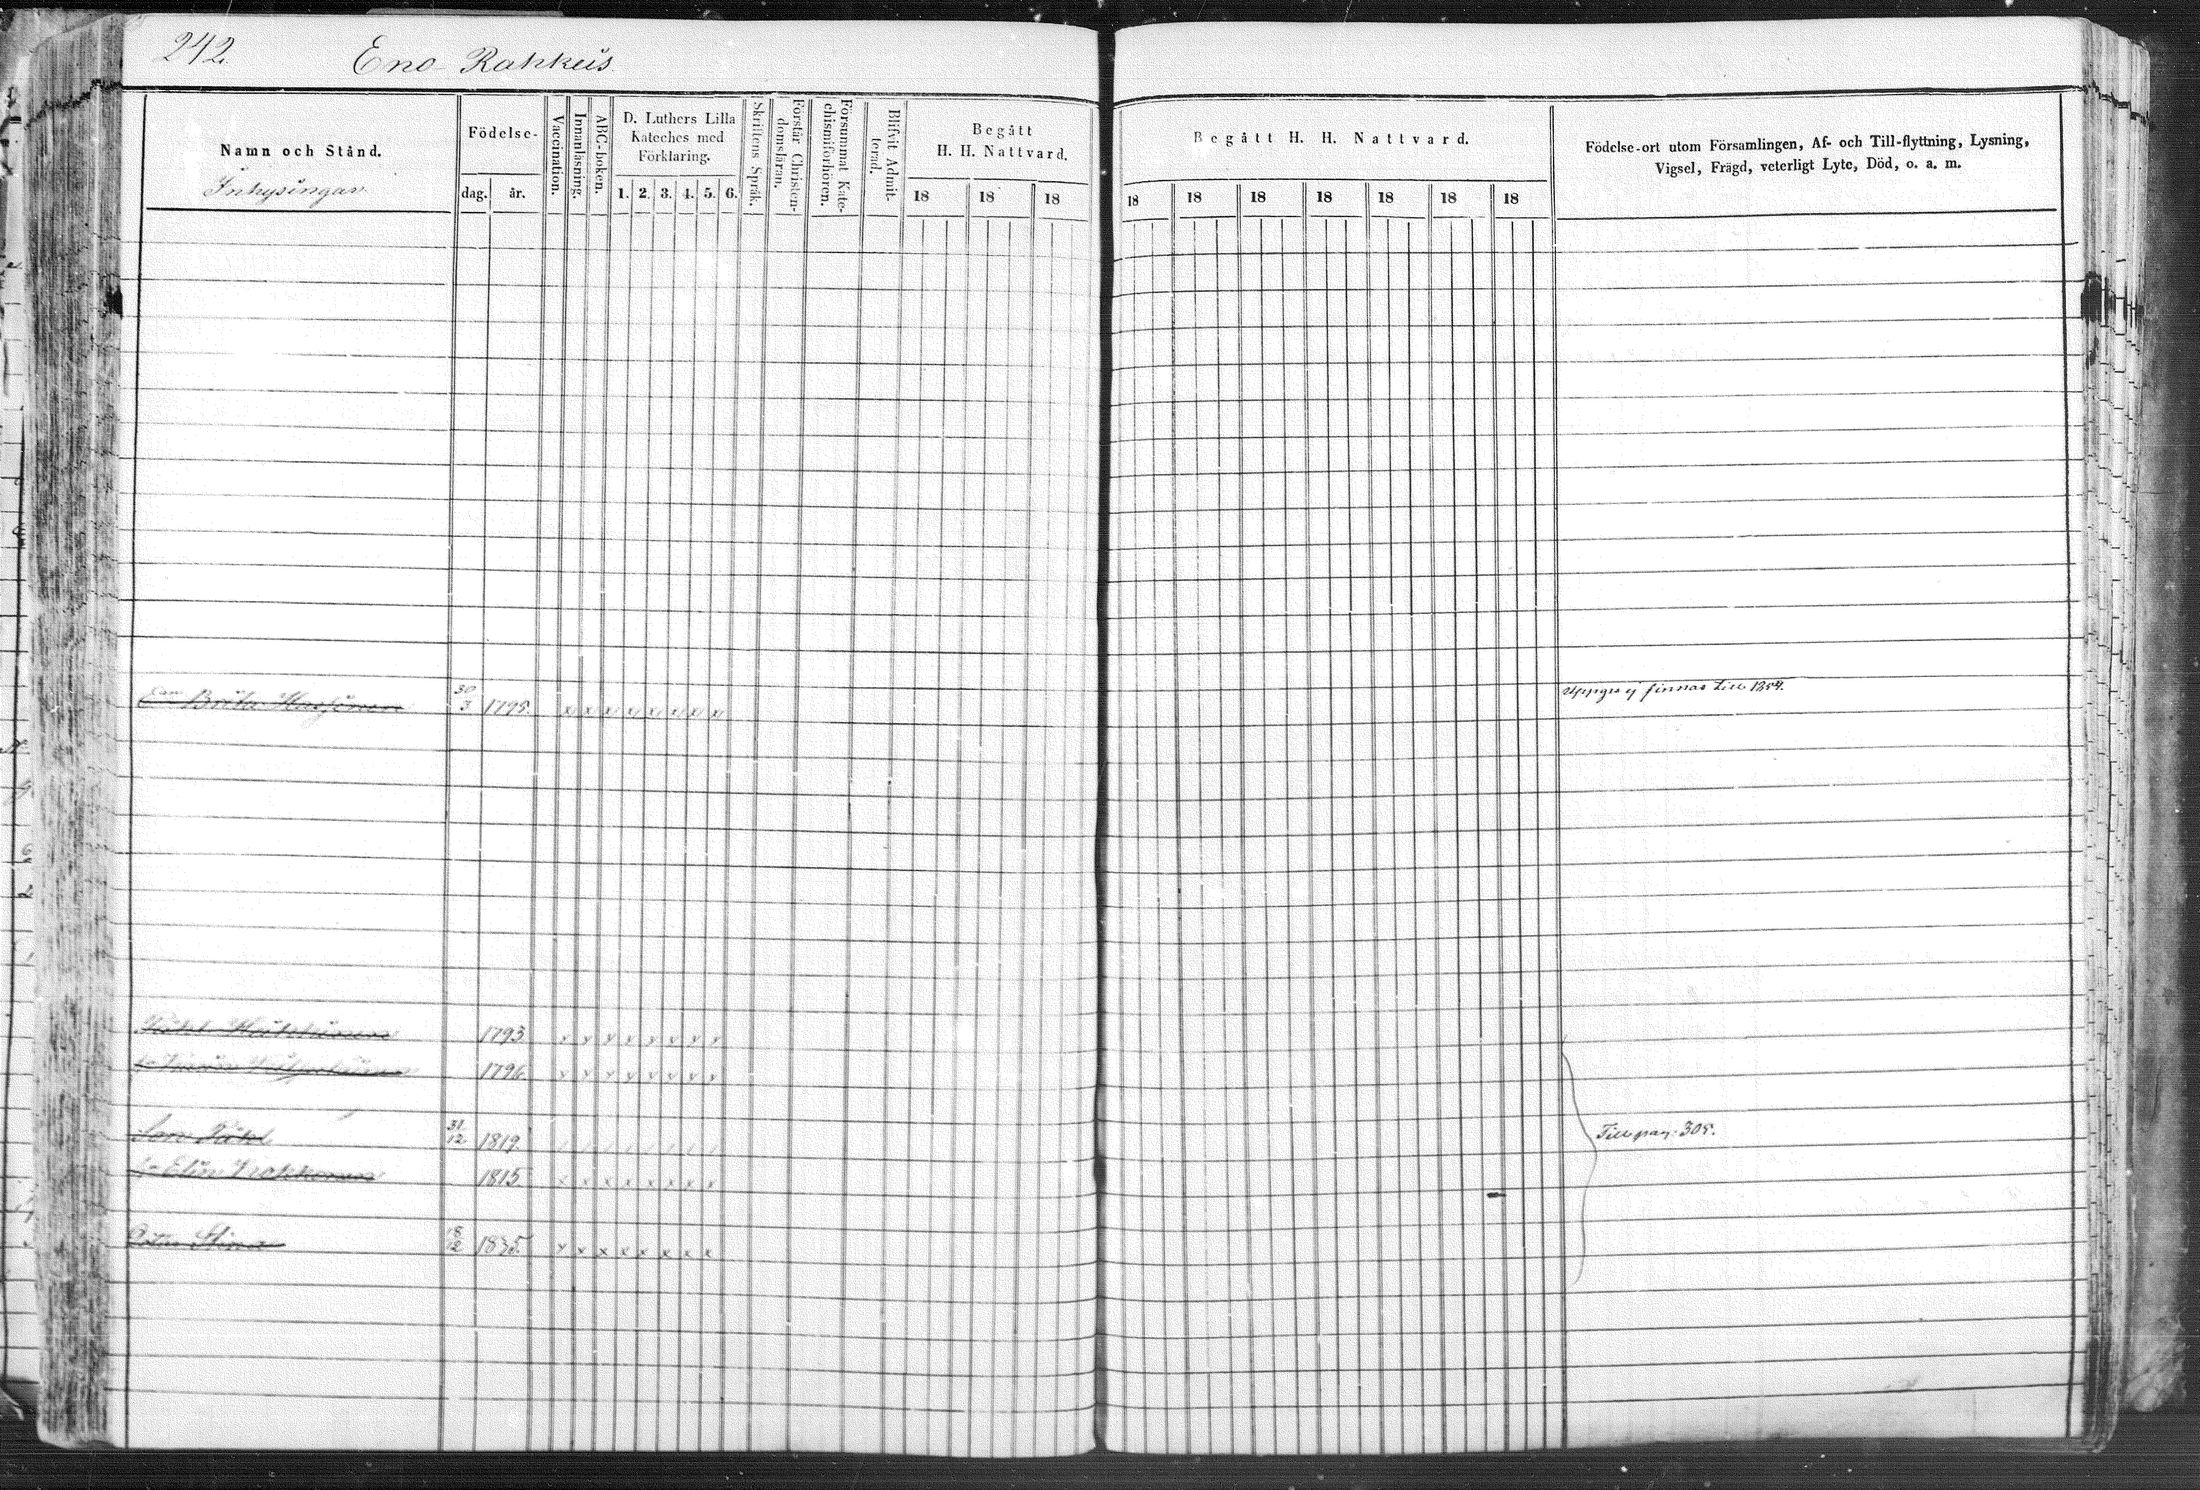 242.
Eno Rahkeis
Namn och Stånd.
Inhysingar
Födelse-
dag.
år.
Vaccination.
Innanläsning.
ABC-boken.
D. Luthers Lilla
Kateches med
Förklaring.
1. 2. 3. 4. 5. 6.
Skriftens Språk.
Förstår Christen-
domsläran.
Försummat Kate-
chismiförhören.
Blifvit Admit-
terad.
Begått
H. H. Nattvard.
18 18 18
Begått H. H. Nattvard.
18 18 18 18 18 18 18
Födelse-ort utom Församlingen, Af- och Till-flyttning, Lysning,
Vigsel, Frägd, veterligt Lyte, Död, o. a. m.
Brita 30/3 1795. x x x x x x x x ej finnas till 1854.
1793 x x x x x x x x
1796 x x x x x x x x
Son 31/12 1819 Till pag. 305.
Elin 1815 x x x x x x x x
Stina 18/12 1835. x x x x x x x x